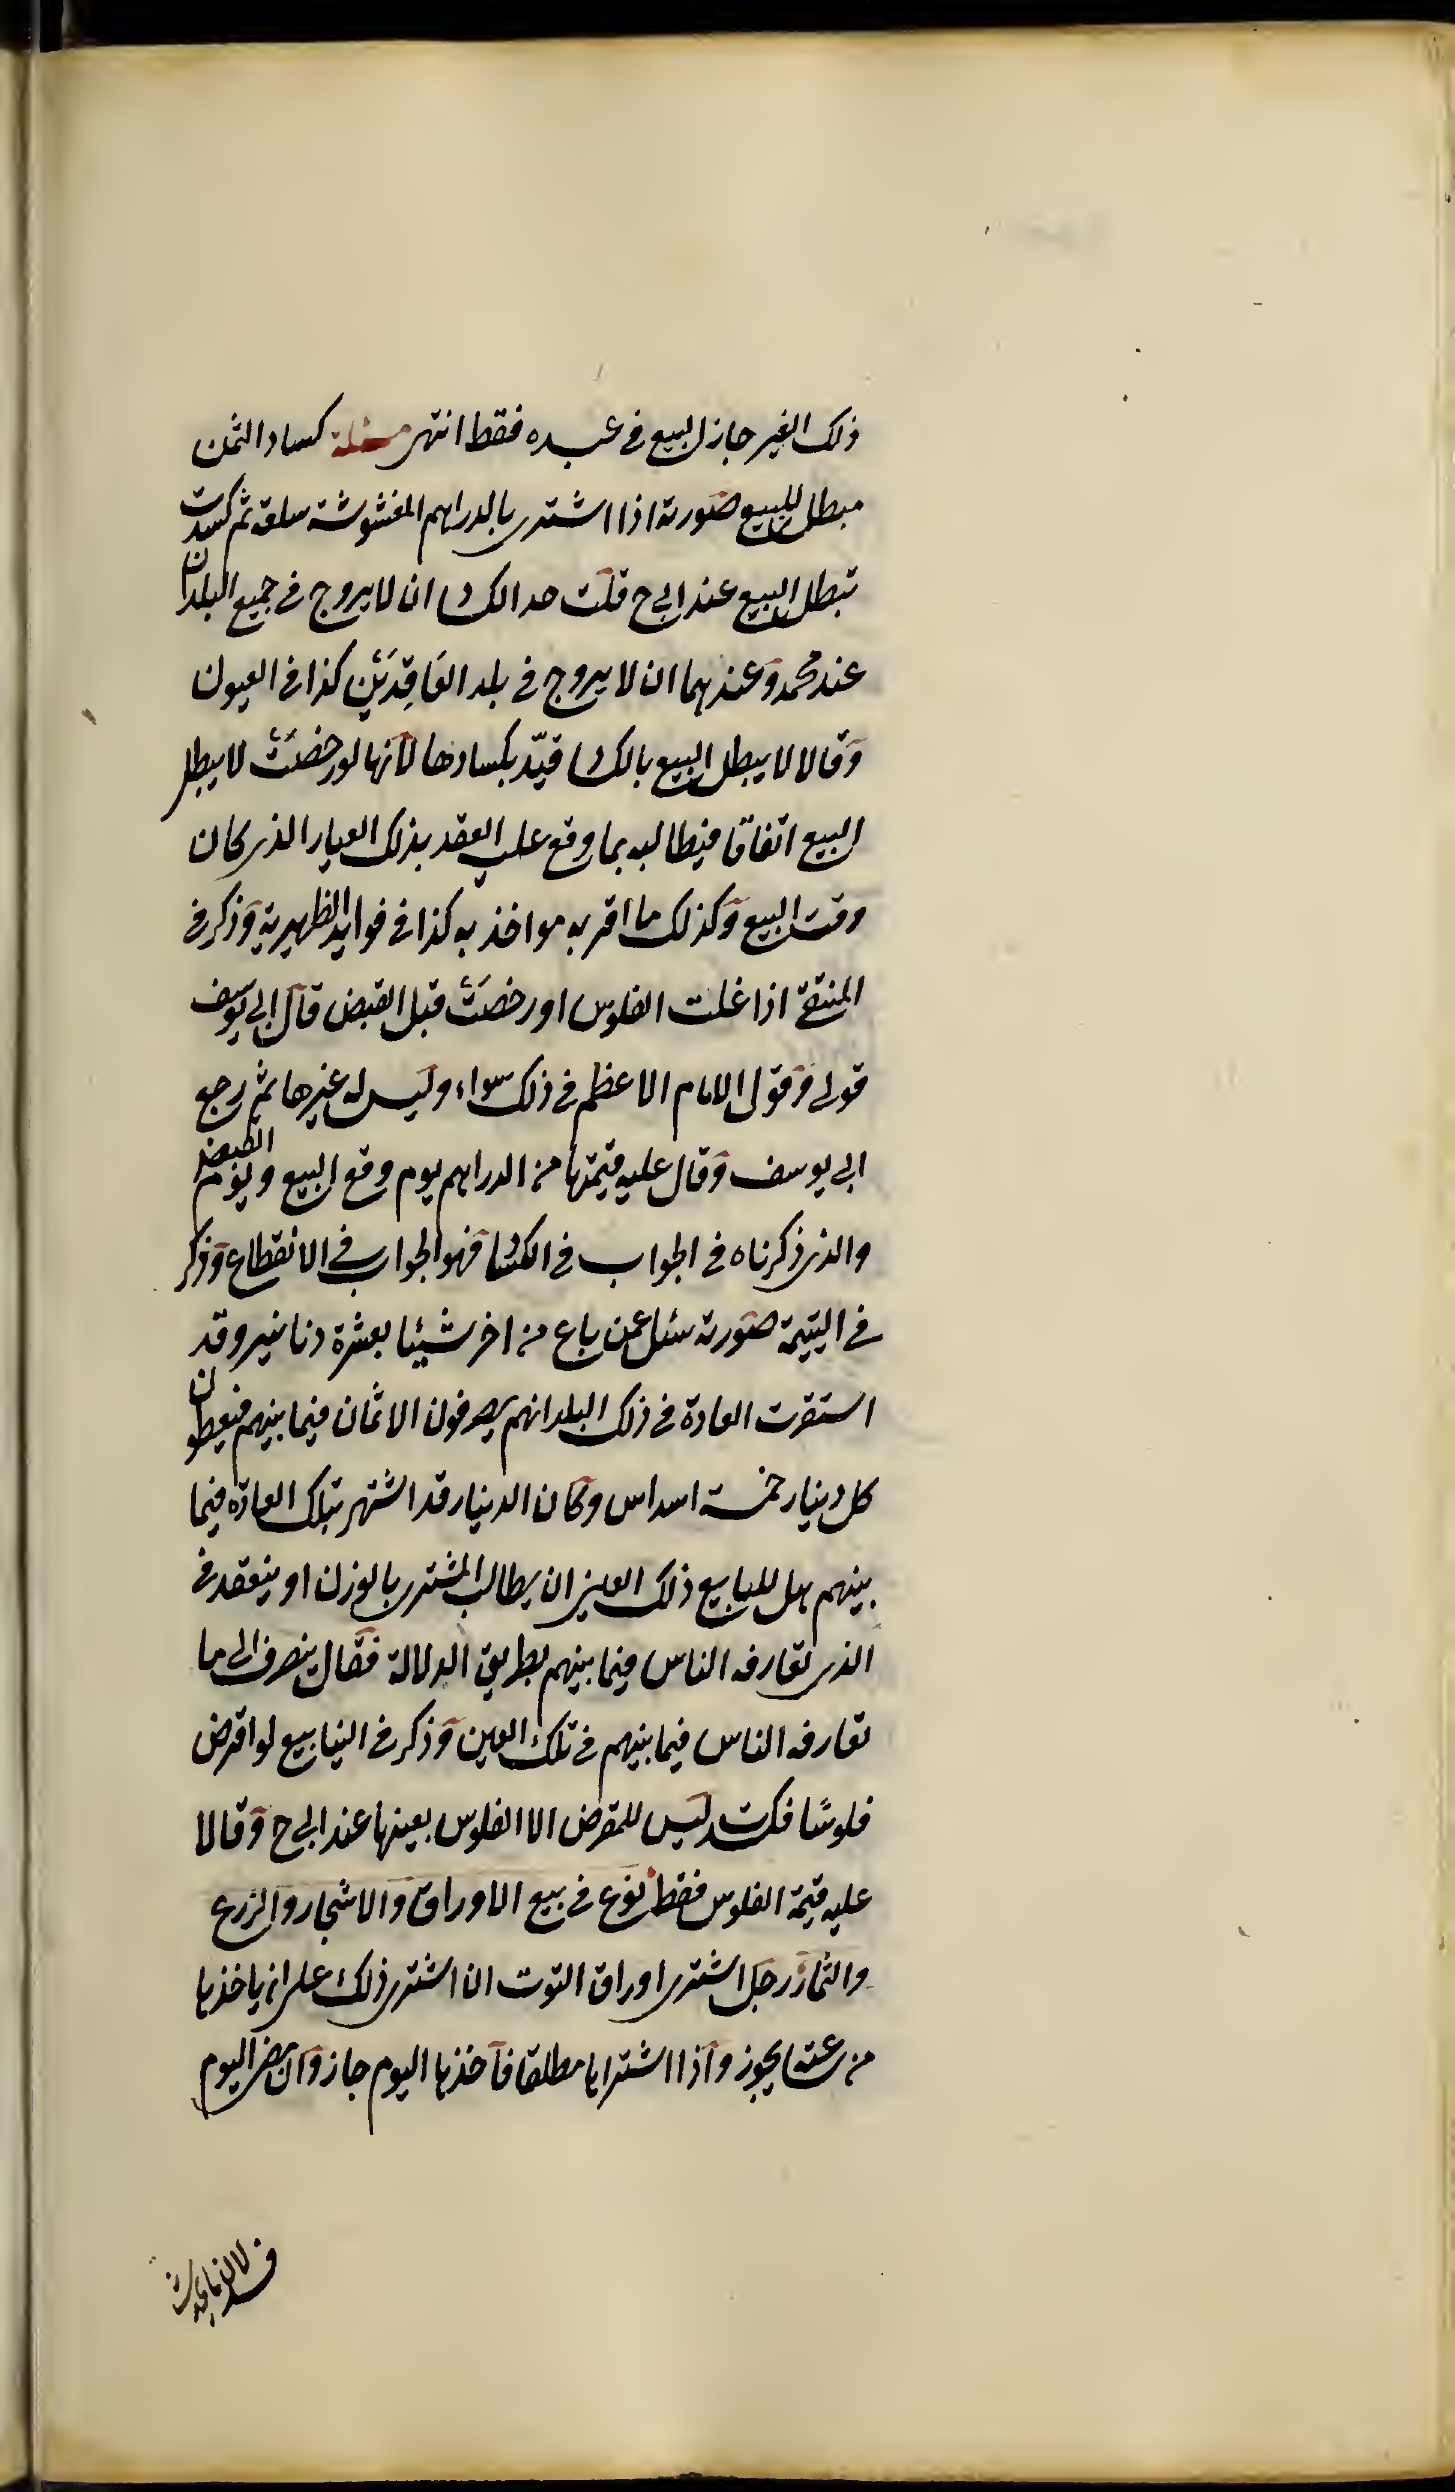 ذلك الغير جاز البيع فى عبده فقط انتهى مسئلة كساد الثمن
مبطل للبيع صورته اذا اشترى بالدراهم المغشوشة سلعة ثم كسدت
تبطل البيع عند ابى ح قلت حد الكساد ان لا يروج فى جميع البلدان
عند محمد وعندهما ان لا يروج فى بلد العَاقِدَيْنِ كذا فى العيون
وقالا لا يبطل البيع بالكساد قيّد بكسادها لأنها لو رخصَتْ لا يبطل
البيع اتفاقا فيطالبه بما وقع عليه العقد بذلك العيار الذى كان
وقت البيع وكذلك ما اقر به مواخذ به كذا فى فوايد الظهيرية وذكر فى
المنتقى اذا غلت الفلوس او رخصَتْ قبل القبض قال ابى يوسف
قولى وقول الامام الاعظم فى ذلك سواء وليس له غيرها ثم رجع
ابى يوسف وقال عليه قيمتها من الدراهم يوم وقع البيع ويوم القبض
والذى ذكرناه فى الجواب فى الكساد فهو الجواب فى الانقطاع وذكر
فى اليتيمة صورته سئل عمن باع من اخر شيئا بعشرة دنانير وقد
استقرت العادة فى ذلك البلد انهم يصرفون الاثمان فيما بينهم فيعطون
كل دينار خمسة اسداس وكان الدينار قد اشتهر بتلك العادة فيما
بينهم هل للبايع ذلك العين ان يطالب المشترى بالوزن او ينعقد فى
الذى تعارفه الناس فيما بينهم بطريق الدلالة فقال ينصرف الى ما
تعارفه الناس فيما بينهم فى تلك العين وذكر فى الينابيع لو اقرض
فلوسًا فكسدت ليس للمقرض الا الفلوس بعينها عند ابى ح وقالا
عليه قيمة الفلوس فقط نوع فى بيع الاوراق والاشجار والزرع
والثمار رجل اشترى اوراق التوت ان اشترى ذلك على ان ياخذها
من ساعته يجوز واذا اشتراها مطلقا فأخذها اليوم جاز وان مضى اليوم